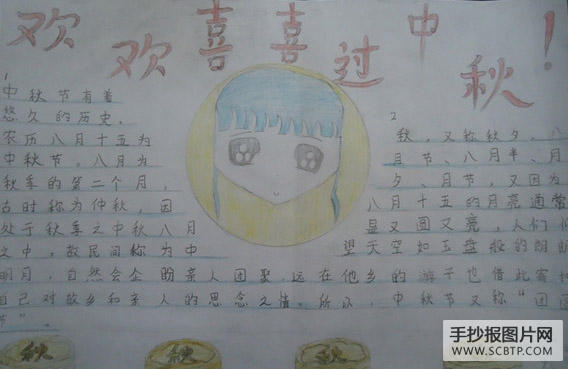 欢欢喜喜过中秋！
1
中秋节有着
悠久的历史。
农历八月十五为
中秋节。八月为
秋季的第二个月，
古时称为仲秋，因
处于秋季之中秋八月
之中，故民间称为中
2
秋，又称秋夕、八
月节、八月半、月
夕、月节，又因为
八月十五的月亮通常
显又圆又亮，人们仰
望天空如玉盘般的朗朗
明月，自然会企盼亲人团聚，远在他乡的游子也借此寄
自己对故乡和亲人的思念之情。所以，中秋节又称“团圆
节”。
秋
秋
秋
秋
手抄报图片网
WWW.SCBTP.COM